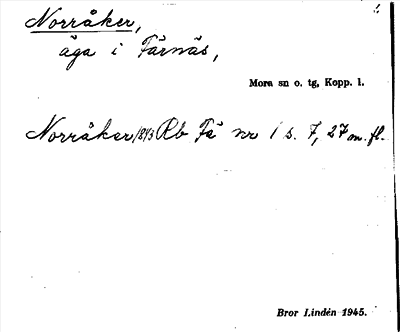 Norråker,
äga i Färnäs,
Mora sn o. tg, Kopp. l.
Norråker 1813 Rb Fä nr 1 s. 7, 27 m. fl.
Bror Lindén 1945.